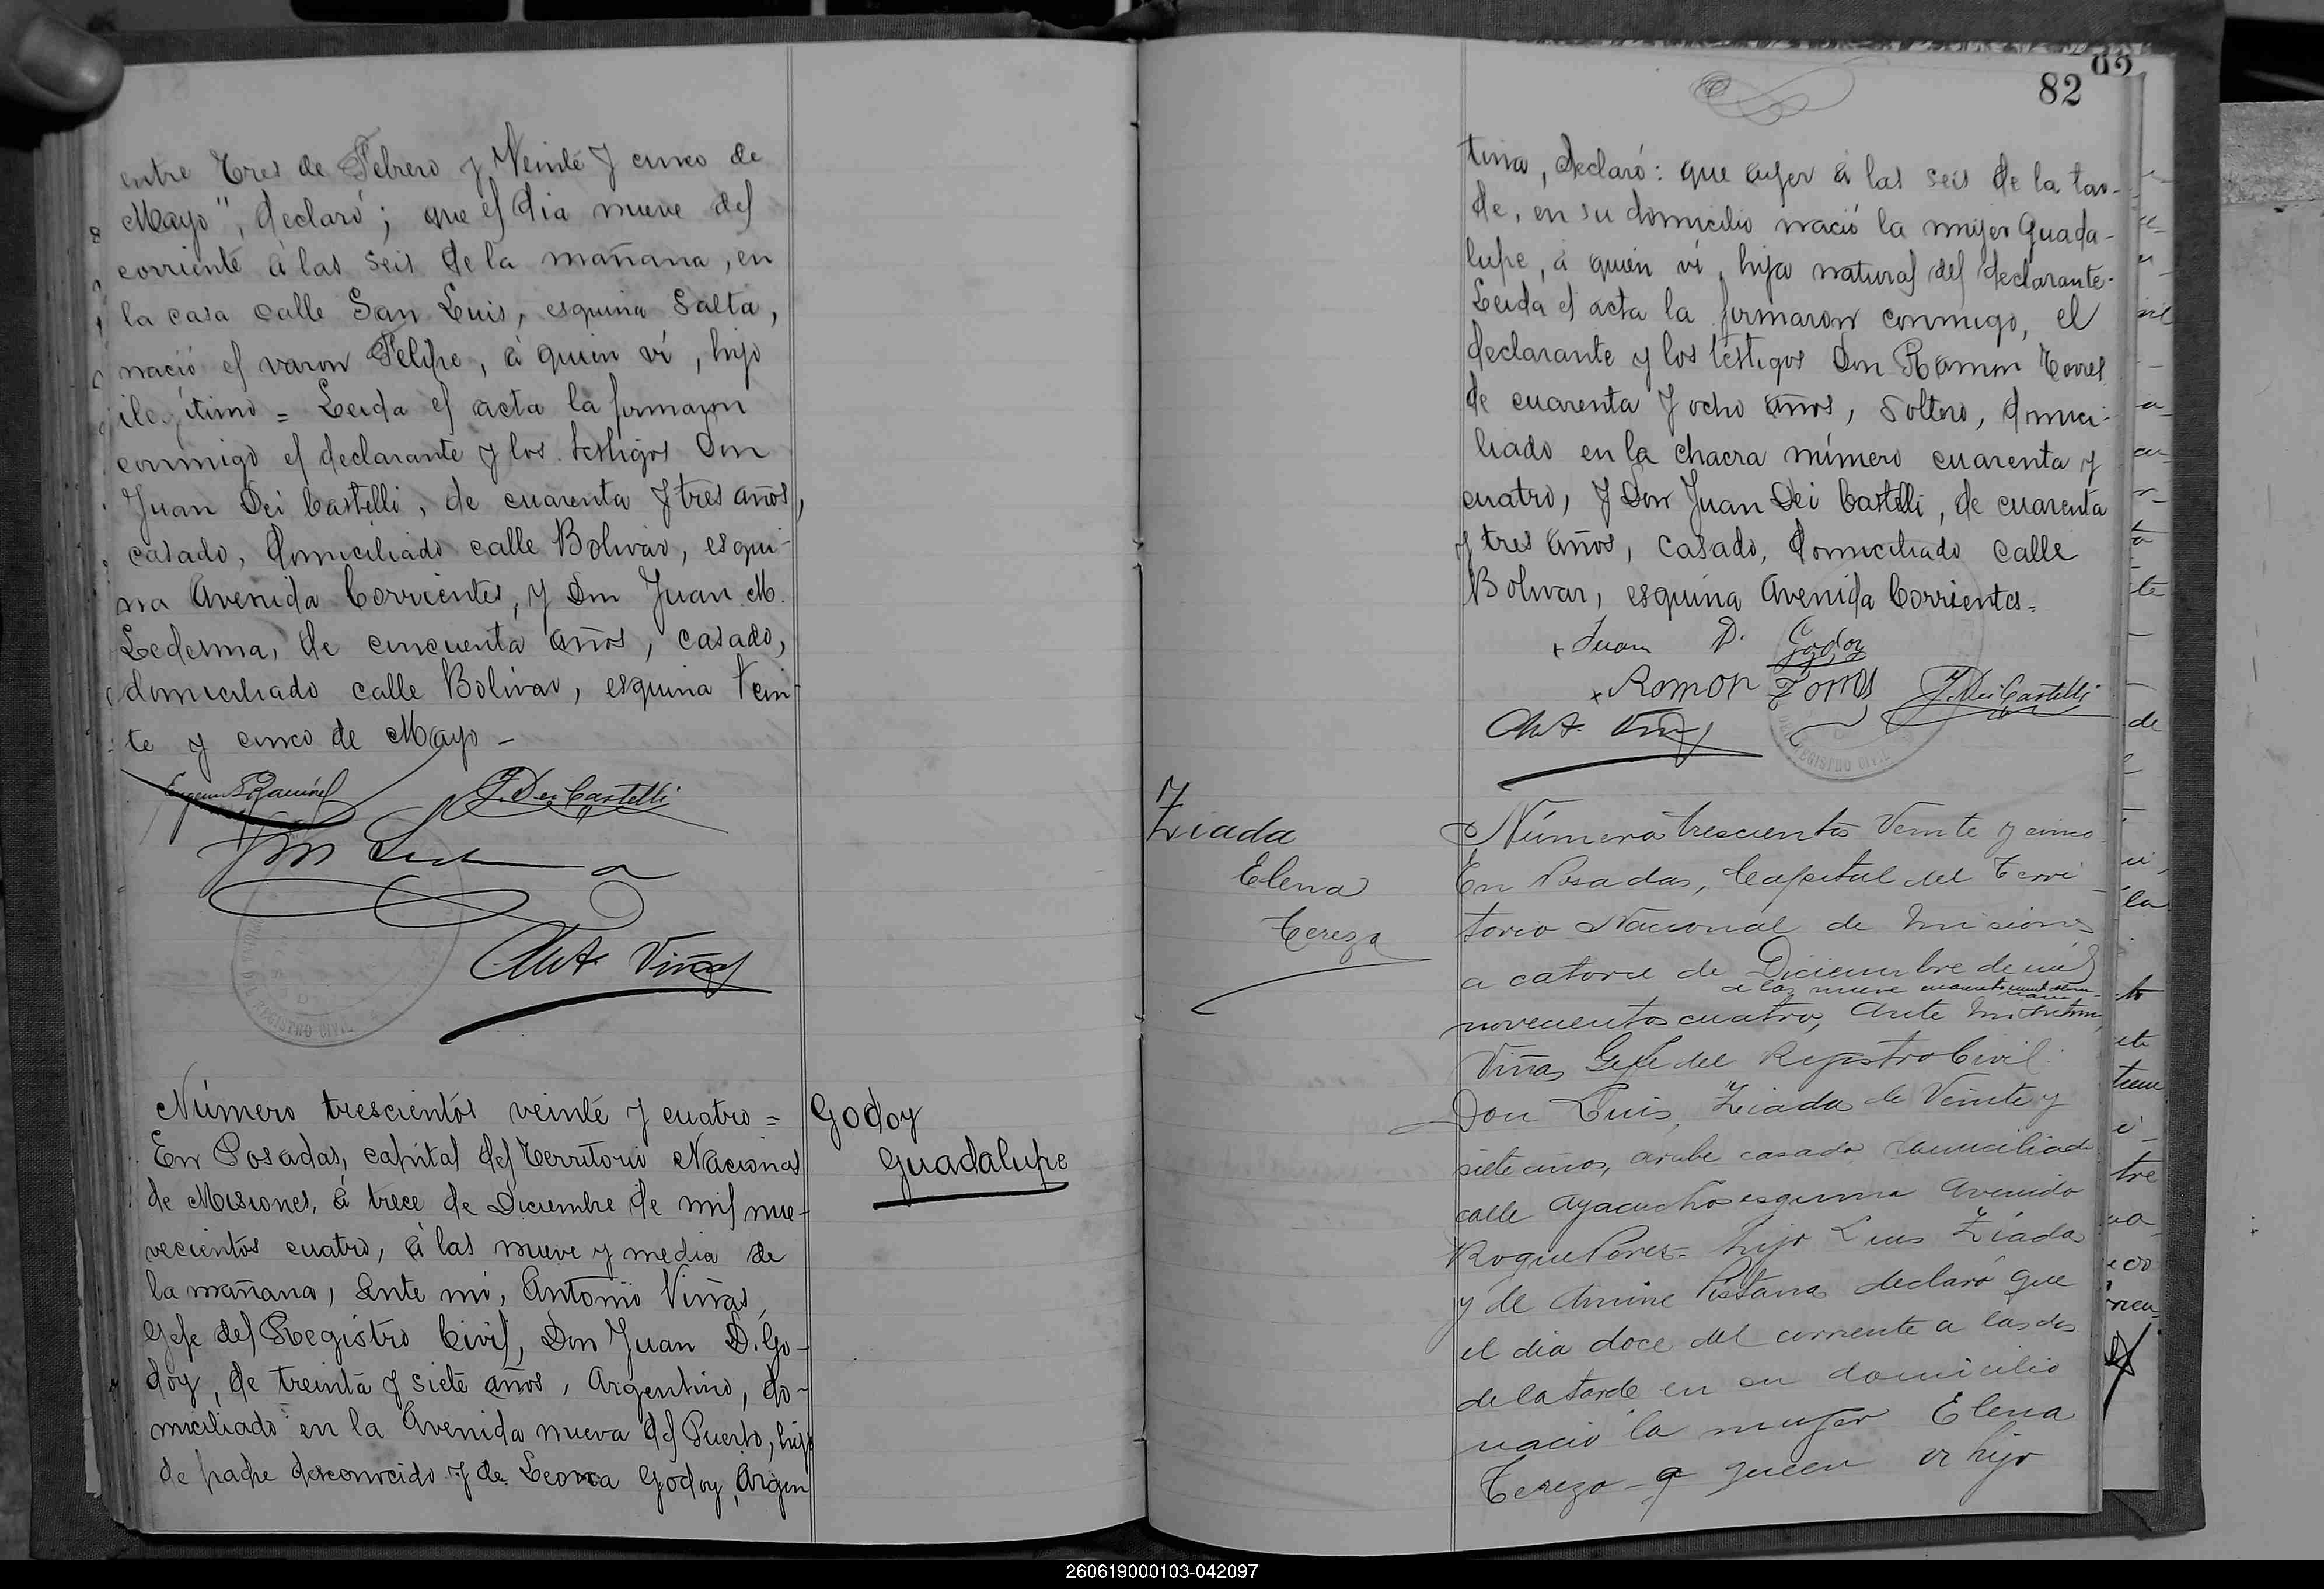 entre Tres de Febrero y Veinte y cinco de
Mayo", declaró; que el dia nueve del
corriente á las seis de la mañana, en
la casa calle San Luis, esquina Salta,
nació el varon Felipe, á quien ví, hijo
ilegítimo = Leida el acta la firmaron
conmigo el declarante y los testigos Don
Juan Dei Castelli, de cuarenta y tres años,
casado, domiciliado calle Bolivar, esqui-
na Avenida Corrientes, y Don Juan M.
Ledesma, de cincuenta años, casado,
domiciliado calle Bolivar, esquina Vein-
te y cinco de Mayo -
J. Dei Castelli
Ant. Viñas
REGISTRO CIVIL
Número trescientos veinte y cuatro =
En Posadas, capital del Territorio Nacional
de Misiones, á trece de Diciembre de mil nue-
vecientos cuatro, á las nueve y media de
la mañana, ante mí, Antonio Viñas,
Gefe del Registro Civil, Don Juan D. Go-
doy, de treinta y siete años, Argentino, do-
miciliado en la Avenida nueva del Puerto, hijo
de padre desconocido y de Leonca Godoy, Argen
Godoy
Guadalupe
82
tina, declaró: que ayer á las seis de la tar-
de, en su domicilio nació la mujer Guada-
lupe, á quien ví, hija natural del declarante-
Leida el acta la firmaron conmigo, el
declarante y los testigos Don Ramon Torres
de cuarenta y ocho años, soltero, domici-
liado en la chacra número cuarenta y
cuatro, y Don Juan Dei Castelli, de cuarenta
y tres años, casado, domiciliado calle
Bolivar, esquina Avenida Corrientes =
Juan D. Godoy
Ramon Torres J. Dei Castelli
Ant. Viñas
REGISTRO CIVIL
Ziada
Elena
Tereza
Número trescientos Veinte y cinco
En Posadas, Capital del Terri-
torio Nacional de Misiones
a catorce de Diciembre de mil
a las nueve
novecientos cuatro, ante mi Antonio
Viñas Gefe del Registro Civil
Don Luis Ziada de Veinte y
siete años, arabe casado domiciliado
calle Ayacucho esquina Avenida
Roque Perez = hijo Luis Ziada
y de Amine Pistana declaró que
el dia doce del corriente a las dos
de la tarde en su domicilio
nació la mujer Elena
Tereza - a quien vi hijo
260619000103-042097